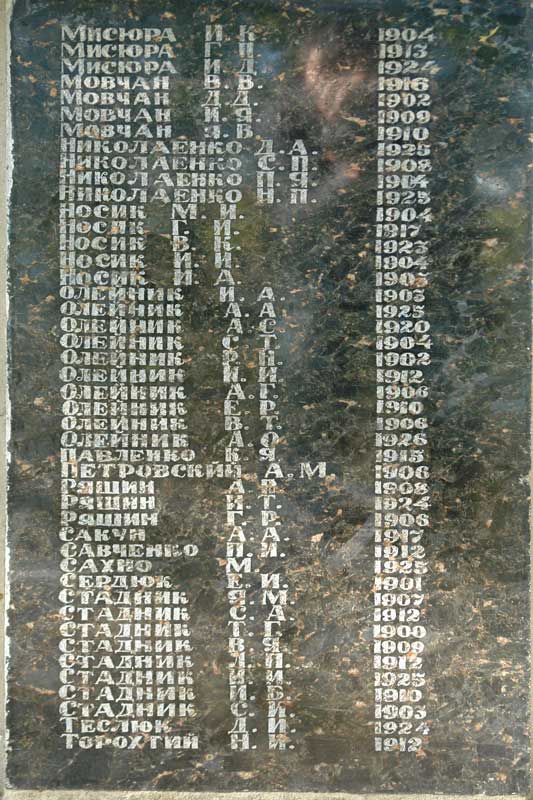 МИСЮРА И. К 1904
МИСЮРА Г. П 1913
МИСЮРА И. Д 1924
МОВЧАН В. В. 1916
МОВЧАН Д. Д. 1902
МОВЧАН И. Я. 1909
МОВЧАН Я. В 1910
НИКОЛАЕНКО Д. А. 1925
НИКОЛАЕНКО С. П. 1908
НИКОЛАЕНКО П. Я. 1904
НИКОЛАЕНКО Н. П. 1925
НОСИК М. И. 1904
НОСИК Г. И. 1917
НОСИК В. К. 1923
НОСИК И. И. 1904
НОСИК И. А. 1903
ОЛЕЙНИК И. А. 1903
ОЛЕЙНИК А. А. 1925
ОЛЕЙНИК А. С. 1920
ОЛЕЙНИК С. Т. 1904
ОЛЕЙНИК 1902
ОЛЕЙНИК И. И. 1912
ОЛЕЙНИК А. Г. 1906
ОЛЕЙНИК Е. Р. 1910
ОЛЕЙНИК В. Т. 1906
ОЛЕЙНИК А. О. 1926
ПАВЛЕНКО К. Я. 1915
ПЕТРОВСКИЙ А. М. 1906
РЯШИН 1908
РЯШИН И. Т. 1924
РЯШИН Г. Р. 1906
САКУН А. А. 1917
САВЧЕНКО П. И. 1912
САХНО М. 1925
СЕРДЮК Е. И. 1901
СТАДНИК Я. М. 1907
СТАДНИК С. А. 1912
СТАДНИК Т. Г. 1900
СТАДНИК В. Я. 1909
СТАДНИК Л. П. 1912
СТАДНИК И. И. 1925
СТАДНИК И. Б. 1910
СТАДНИК С. И. 1903
ТЕСЛЮК Д. И. 1924
ТОРОХТИЙ Н. И. 1912